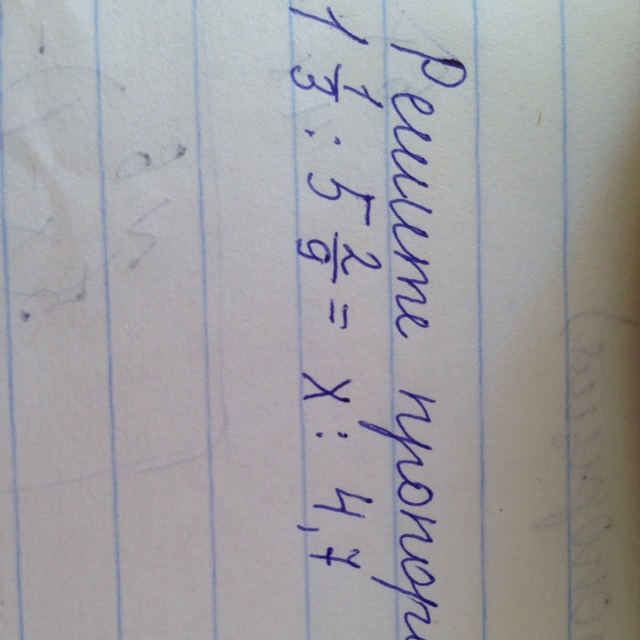 Решите пропор
1 1/3 : 5 2/9 = x : 4,7